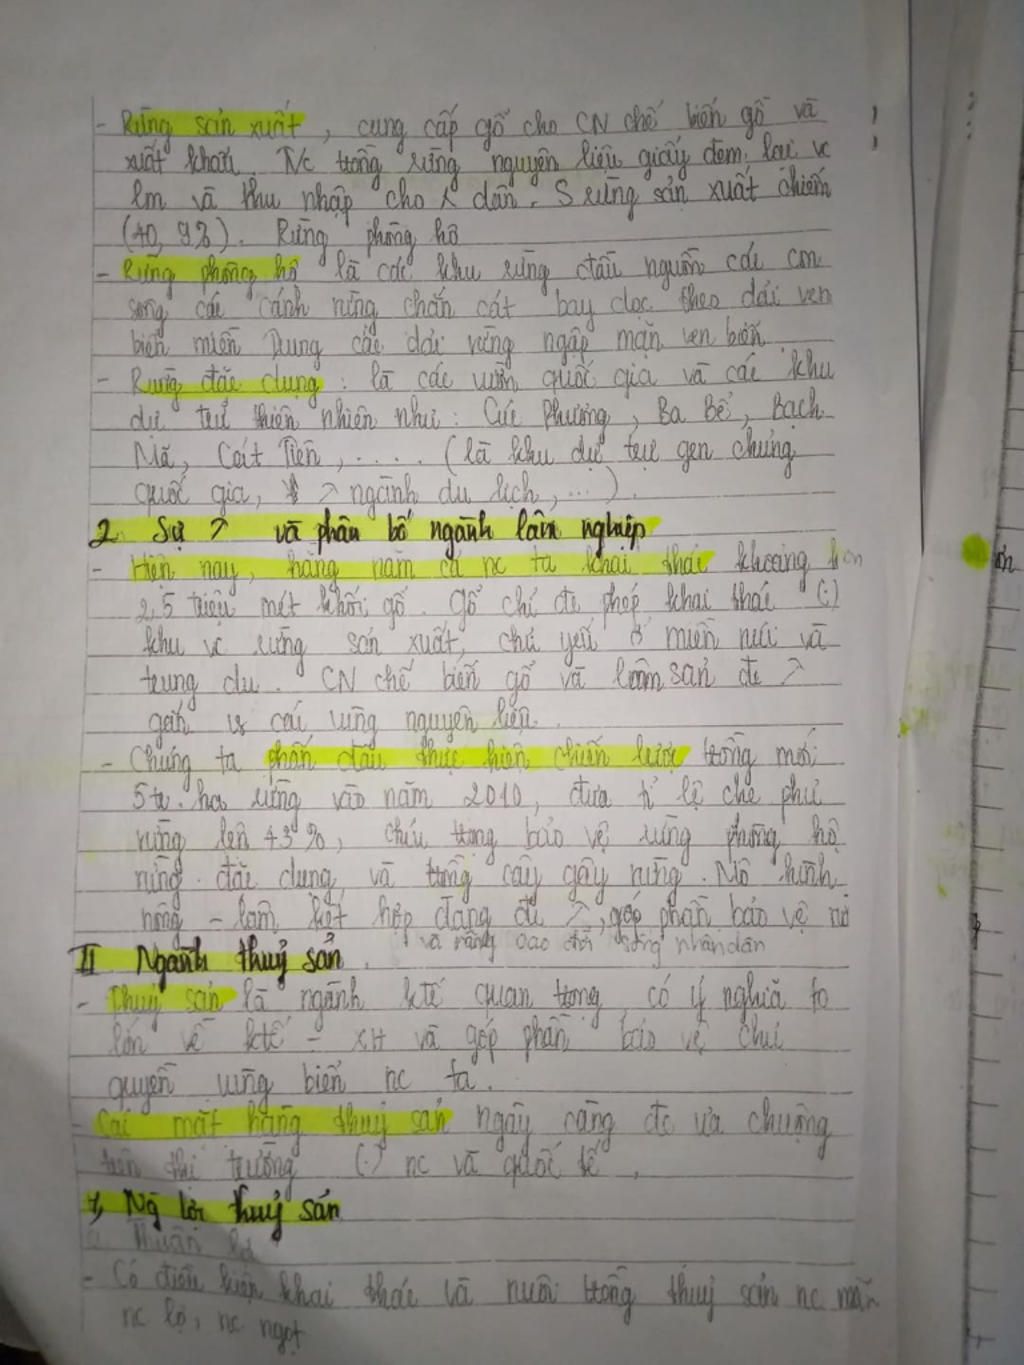 - Rừng sản xuất, cung cấp gỗ cho CN chế biến gỗ và
xuất khẩu. Vc trồng rừng nguyên liệu giấy đem lại vc
lm và thu nhập cho dân. S rừng sản xuất chiếm
(40,9%). Rừng phòng hộ
- Rừng phòng hộ là các khu rừng đầu nguồn các con
sông các cánh rừng chắn cát bay dọc theo dải ven
biển miền Trung các dải rừng ngập mặn ven biển
- Rừng đặc dụng: là các vườn quốc gia và các khu
dự trữ thiên nhiên như: Cúc Phương, Ba Bể, Bạch
Mã, Cát Tiên,.... (là khu dự trữ gen chủng
quốc gia, ↗ ngành du lịch,...).
2. Sự ↗ và phân bố ngành lâm nghiệp
- Hiện nay, hàng năm cả nc ta khai thác khoảng hơn
2,5 triệu mét khối gỗ. Gỗ chỉ đc phép khai thác (.)
khu vc rừng sản xuất, chủ yếu ở miền núi và
trung du. CN chế biến gỗ và lâm sản đc ↗
gắn vs các vùng nguyên liệu.
- Chúng ta phấn đấu thực hiện chiến lược trồng mới
5tr.ha rừng vào năm 2010, đưa tỉ lệ che phủ
rừng lên 43%, chú trọng bảo vệ rừng phòng hộ
rừng đặc dụng, và trồng cây gây rừng. Mô hình
nông - lâm kết hợp đang đc ↗, góp phần bảo vệ
và nâng cao đời sống nhân dân
II Ngành thuỷ sản.
- Thuỷ sản là ngành ktế quan trọng, có ý nghĩa to
lớn về ktế - XH và góp phần bảo vệ chủ
quyền vùng biển nc ta.
- Các mặt hàng thuỷ sản ngày càng đc ưa chuộng
trên thị trường (.) nc và quốc tế.
1, Ng lợi thuỷ sản
a. Thuận lợi
- Có điều kiện khai thác và nuôi trồng thuỷ sản nc mặn
nc lợ, nc ngọt